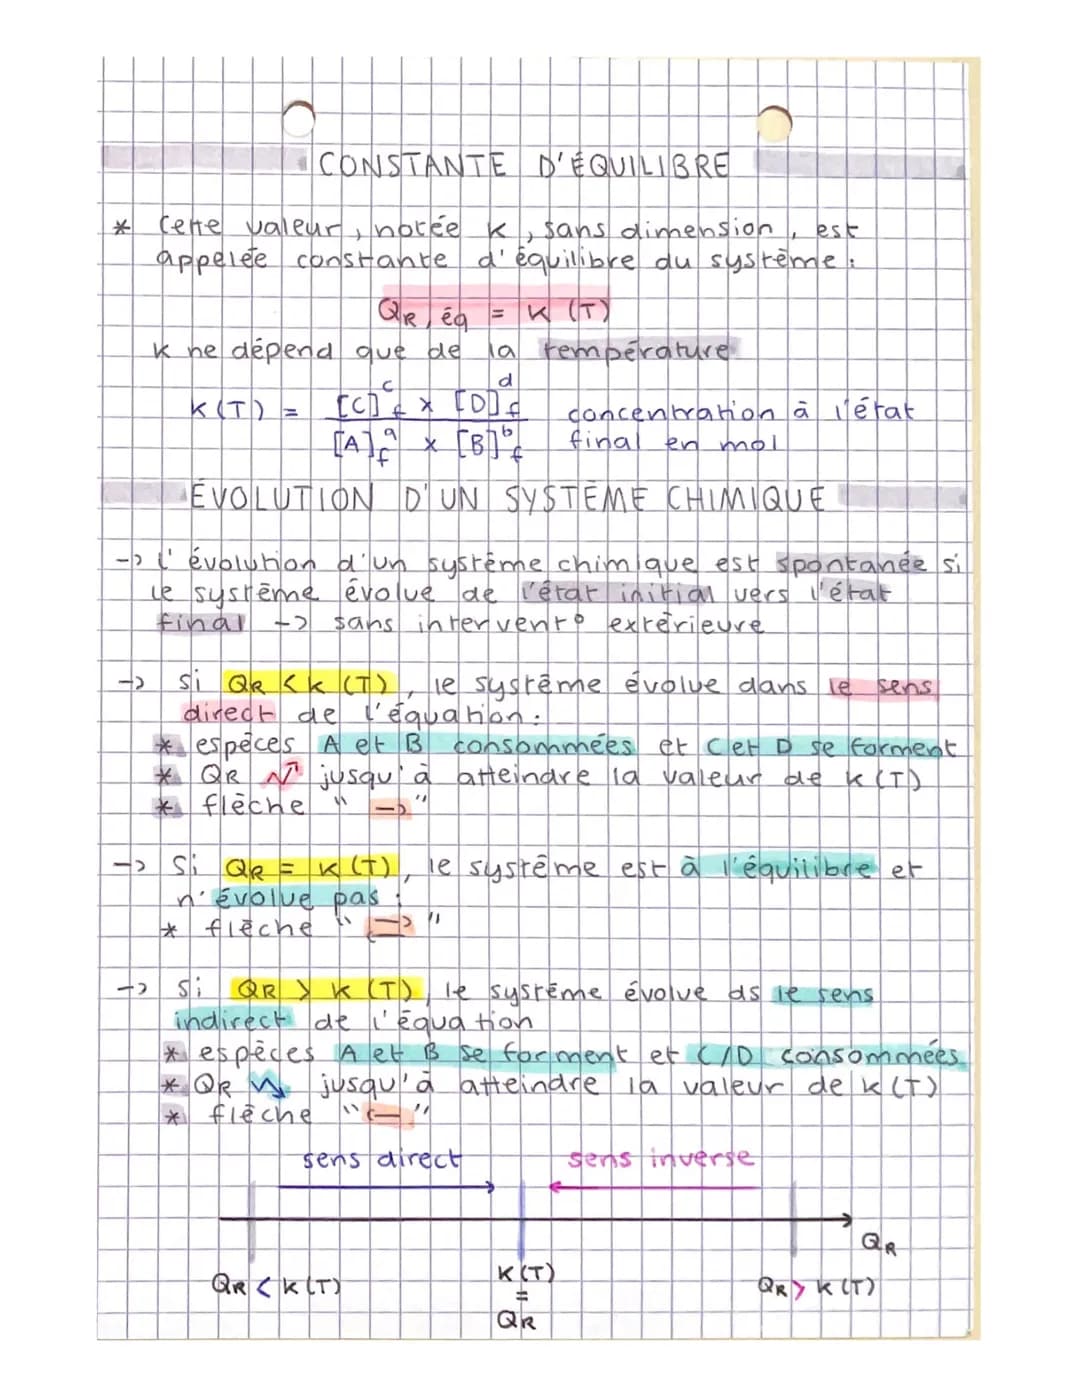 CONSTANTE D'ÉQUILIBRE
* Cette valeur, notée K, sans dimension, est
appelée constante d'équilibre du système :
QR,éq = K (T)
K ne dépend que de la température
K(T) = [C]^c_f x [D]^d_f / [A]^a_f x [B]^b_f concentration à l'état
final en mol
ÉVOLUTION D'UN SYSTÈME CHIMIQUE
-> l'évolution d'un système chimique est spontanée si
le système évolue de l'état initial vers l'état
final -> sans intervent° extérieure
-> si QR < K (T), le système évolue dans le sens
direct de l'équation :
* espèces A et B consommées et C et D se forment
* QR ↗ jusqu'à atteindre la valeur de K(T)
* flèche " -> "
-> Si QR = K (T), le système est à l'équilibre et
n'évolue pas :
* flèche " ⇌ "
-> Si QR > K (T), le système évolue ds le sens
indirect de l'équation
* espèces A et B se forment et C/D consommées
* QR ↘ jusqu'à atteindre la valeur de K(T)
* flèche " <- "
sens direct sens inverse
QR
QR < K(T) K(T) = QR QR > K(T)